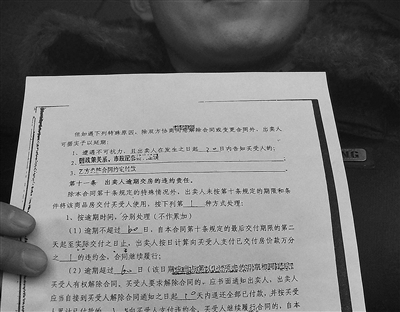 但如遇下列特殊原因，除双方协商同意解除合同或变更合同外，出卖人
可据实予以延期：
1、遭遇不可抗力，且出卖人在发生之日起 20 日内告知买受人的；
2、
3、
第十一条 出卖人逾期交房的违约责任。
除本合同第十条规定的特殊情况外，出卖人未按第十条规定的期限和条
件将该商品房交付买受人使用，按下列第 1 种方式处理：
1、按逾期时间，分别处理（不作累加）
（1）逾期不超过 60 日，自本合同第十条规定的最后交付期限的第二
天起至实际交付之日止，出卖人按日计算向买受人支付已交付房价款万分
之 1 的违约金，合同继续履行；
（2）逾期超过 60 日（该日期
买受人有权解除合同。买受人要求解除合同的，应书面通知出卖人，出卖人
应当自接到买受人解除合同通知之日起 天内退还全部已付款，并按买受
人累计已付款的 向买受人支付违约金。买受人继续履行合同的，自本
NG